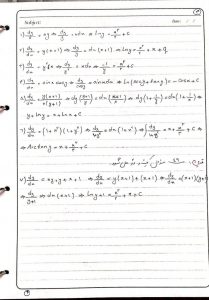 Subject: Date: / /
۱) dy/dx = xy ⇒ dy/y = xdx ⇒ lny = x²/2 + C
۲) dy/dx = y(x+1) ⇒ dy/y = dx(x+1) ⇒ lny = x²/2 + x + C
۳) dy/dx = y²x ⇒ dy/y² = xdx ⇒ -1/y = x²/2 + C
۴) dy/dx = sinx cosy ⇒ dy/cosy = sinxdx ⇒ ln(secy+tany) = -cosx + C
۵) dy/dx = y(x+1)/x(y+1) ⇒ dy(y+1)/y = dx(x+1)/x ⇒ dy(1+1/y) = dx(1+1/x) ⇒
y + lny = x + lnx + C
⇒ Arctany = x + x³/3 + C
۷) dy/dx = xy + y + x + 1 ⇒ dy/dx = y(x+1) + (x+1) ⇒ dy/dx = (x+1)(y+1)
⇒ dy/y+1 ⇒ dx(x+1) ⇒ lny+1 = x²/2 + x + C